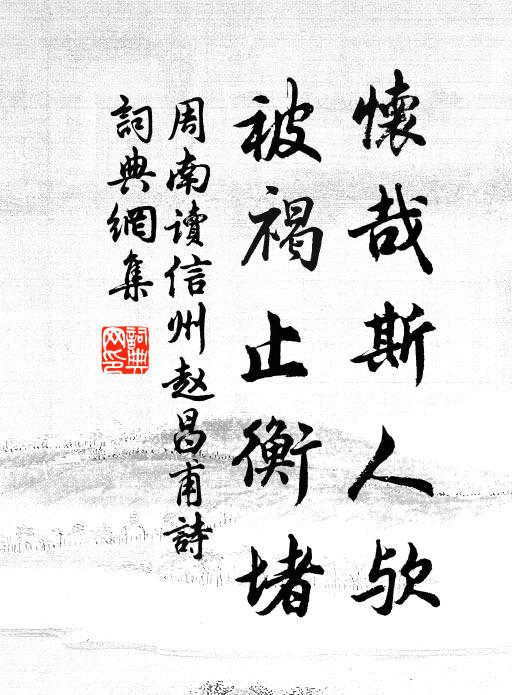 懷哉斯人欤
被褐止衡堵
周南读信州赵昌甫詩
詞典網集
詞典
网印